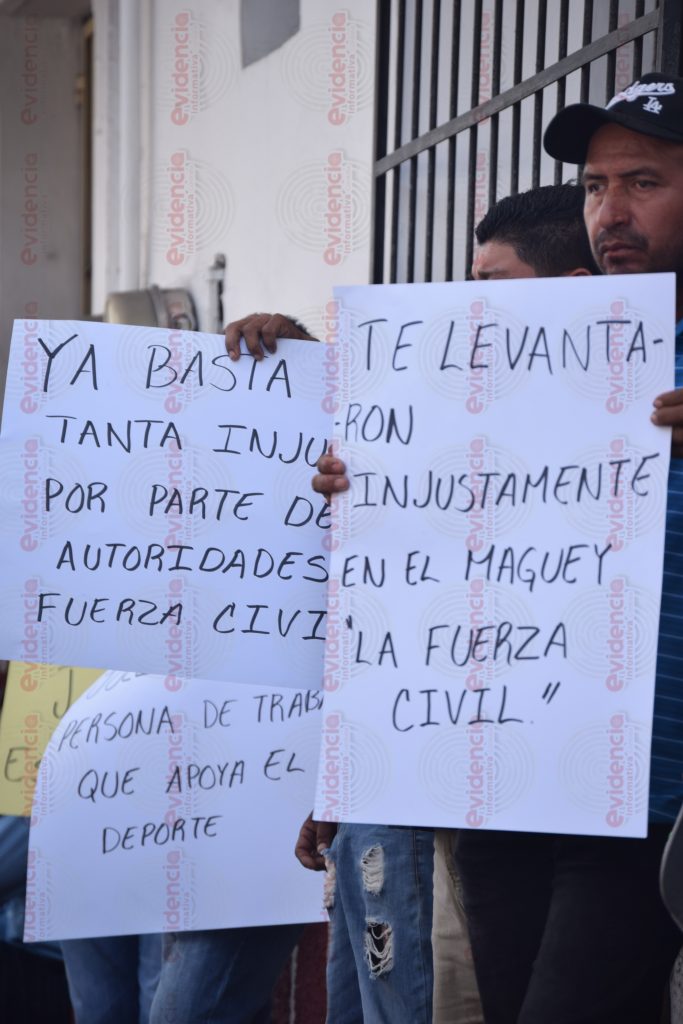 Dodgers
LA
YA BASTA
TANTA INJU
POR PARTE DE
AUTORIDADES
FUERZA CIVI
TE LEVANTA-
RON
INJUSTAMENTE
EN EL MAGUEY
"LA FUERZA
CIVIL."
PERSONA DE TRABA
QUE APOYA EL
DEPORTE
evidencia
informativa